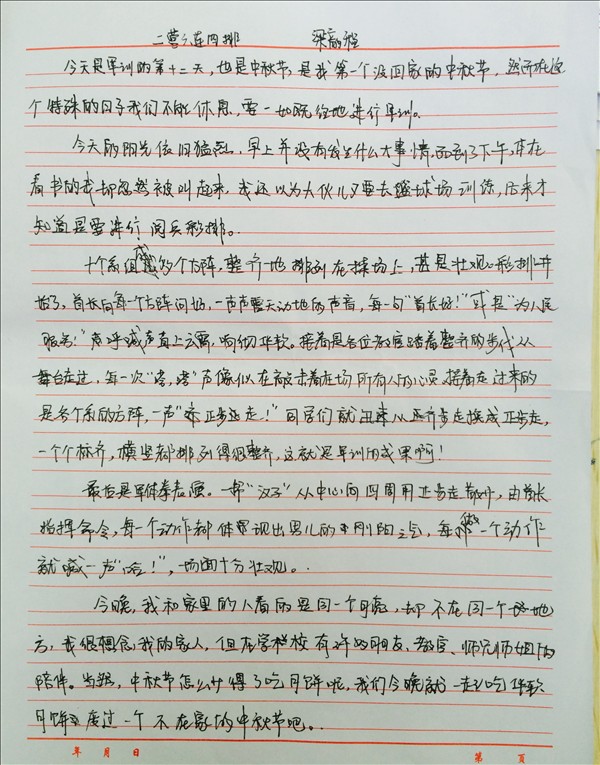 二营六连四排 梁
今天是军训的第十二天，也是中秋节，是我第一个没回家的中秋节，然而在这
个特殊的日子我们不能休息，要一如既往地进行军训。
今天的阳光依旧猛烈，早上并没有发生什么大事情，而到了下午，本在
看书的我却忽然被叫起来，我还以为大伙儿又要去篮球场训练，后来才
知道是要进行阅兵彩排。
十个系组成的个方阵，整齐地排列在操场上，甚是壮观。彩排开
始了，首长向每个方阵问好，一声声震天动地的声音，每一句“首长好！”或是“为人民
服务！”声呼喊声直上云霄，响彻华软。接着是各位教官踏着整齐的步伐从
舞台走过，每一次“嗒，嗒”声像似在敲击着在场所有人的心灵。接着走过来的
是各个系的方阵，一声“正步走！”同学们就迅速从齐步走换成正步走，
一个个标齐，横竖都排列得很整齐，这就是军训的成果啊！
最后是军体拳表演。一帮“汉子”从中心向四周用正步走散开，由首长
指挥命令，每一个动作都体现出男儿的阳刚之气，每做一个动作
就喊一声“哈！”，场面十分壮观。
今晚，我和家里的人看的是同一个月亮，却不在同一个地
方，我很想念我的家人，但在学校有许多好朋友、教官、师兄师姐的
陪伴。当然，中秋节怎么少得了吃月饼呢，我们今晚就一起吃华软
月饼度过一个不在家的中秋节吧。
年 月 日 第 页